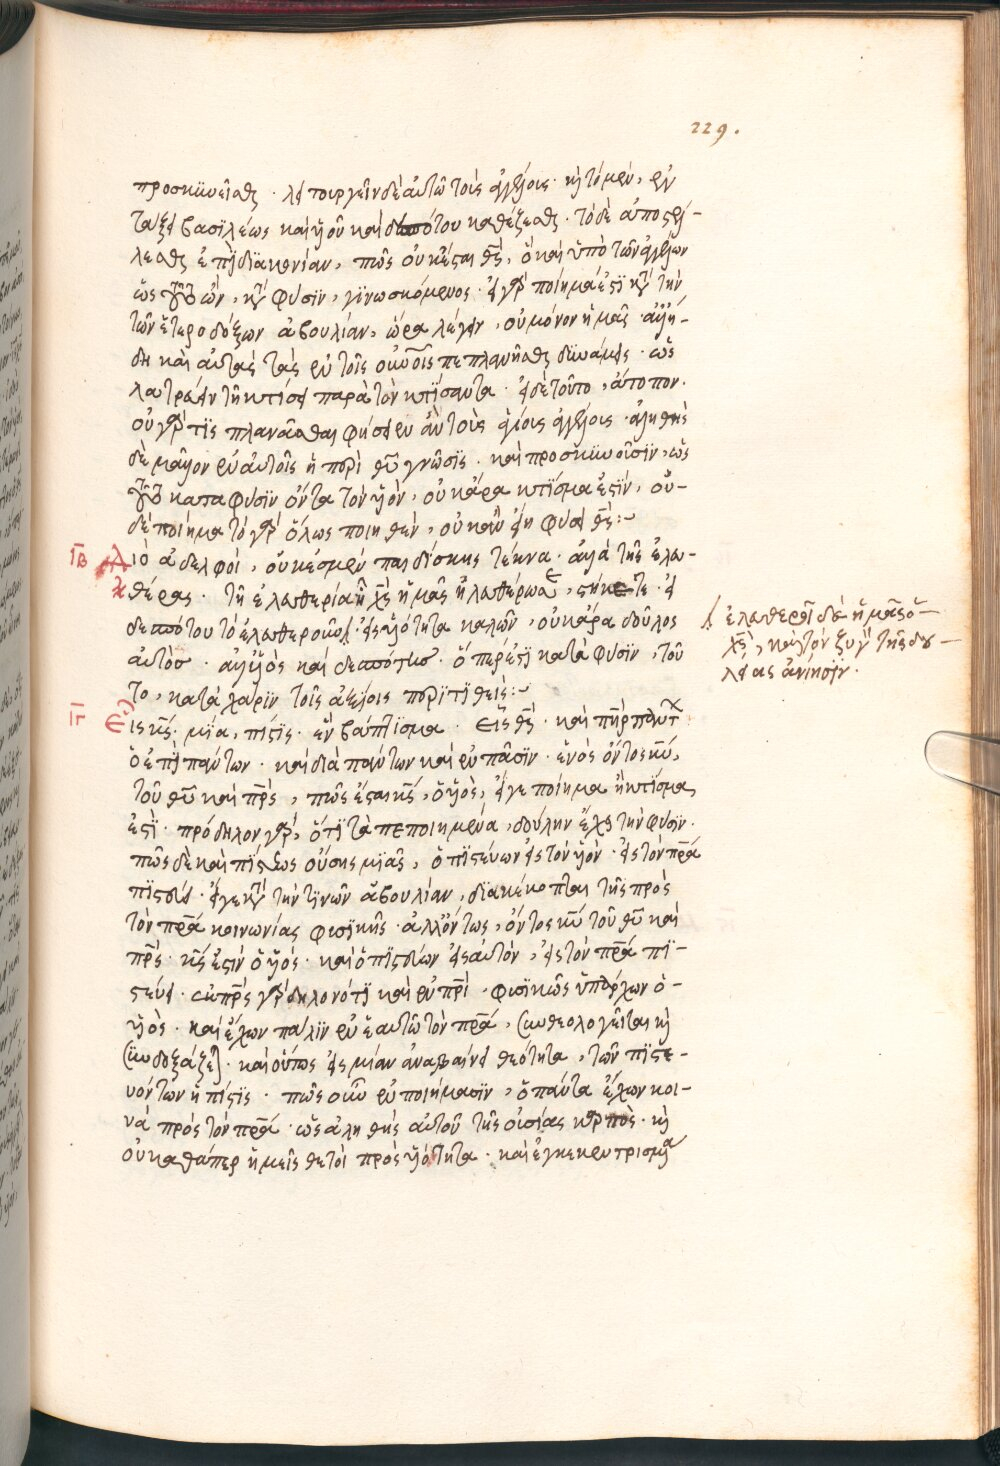 229.
προσκυνεῖσθαι · λειτουργεῖν δὲ αὐτῶ τοῖς ἀγγέλοις · κ̀ τὸ μὲν, ἐν
τάξει βασιλέως καὶ υἱοῦ καὶ δεσπότου καθέζεσθαι · τὸ δὲ ἀποστέλ-
λεσθαι ἐπὶ διακονίαν, πῶς οὐκ ἔσται θς̀, ὁ καὶ ὑπὸ τῶν ἀγγέλων
ὡς θῦ ὢν, κατὰ φύσιν, γινωσκόμενος · εἰ γὰρ ποίημά ἐστι κατὰ τὴν
τῶν ἑτεροδόξων ἀβουλίαν, ὥρα λέγειν, οὐ μόνον ἡμᾶς ἀλλ' ἤ-
δη καὶ αὐτὰς τὰς ἐν τοῖς οὐνοῖς πεπλανῆσθαι δυνάμεις · ὡς
λατρεύειν τῆ κτίσει παρὰ τὸν κτίσαντα · εἰ δὲ τοῦτο, ἄτοπον ·
οὐ γὰρ τις πλανᾶσθαι φήσειεν ἂν τοὺς ἁγίους ἀγγέλους · ἀληθὴς
δὲ μᾶλλον ἐν αὐτοῖς ἡ περὶ θῦ γνῶσις · καὶ προσκυνοῦσιν, ὡς
θῦ κατα φύσιν ὄντα τὸν υἱὸν, οὐκ ἄρα κτίσμα ἐστὶν, οὐ-
δὲ ποίημα τὸ γὰρ ὅλως ποιηθὲν, οὐκ ἂν εἴη φύσει θς̀:-
ιβ Διὸ ἀδελφοὶ, οὐκ ἐσμὲν παιδίσκης τέκνα · ἀλλὰ τῆς ἐλευ-
θέρας · τῆ ἐλευθερία ἧ χς̀ ἡμᾶς ἠλευθέρωσε, στήκετε · εἰ
δεσπότου τὸ ἐλευθεροῦν · εἰς υἱότητα καλῶν, οὐκ ἄρα δοῦλος
ἐλευθεροῖ δὲ ἡμᾶς ὁ
χς̀, καὶ τὸν ζυγὸν τῆς δου-
λείας ἀνίησιν ·
αὐτὸς · ἀλλ' υἱὸς καὶ δεσπότης · ὅπερ ἐστὶ κατὰ φύσιν, τοῦ
το, κατὰ χάριν τοῖς ἀξίοις περιτιθείς:-
ιγ Εἷς κς̀ · μία, πίστις · ἓν βάπτισμα · εἷς θς̀ · καὶ πὴρ πάντων
ὁ ἐπὶ πάντων · καὶ διὰ πάντων καὶ ἐν πᾶσιν · ἑνὸς ὄντος κῦ,
τοῦ θῦ καὶ πρς̀, πῶς ἔσται κς̀, ὁ υἱὸς, εἴγε ποίημα ἢ κτίσμα
ἐστὶ · πρόδηλον γὰρ, ὅτι τὰ πεποιημένα, δούλην ἔχει τὴν φύσιν ·
πῶς δὲ καὶ πίστεως οὔσης μιᾶς, ὁ πιστεύων εἰς τὸν υἱὸν · εἰς τὸν πρα
πιστεύει · εἴγε κατὰ τὴν τινῶν ἀβουλίαν, διακέκοπται τῆς πρὸς
τὸν πρα κοινωνίας φυσικῆς · ἀλλ' ὄντως, ὄντος κῦ τοῦ θῦ καὶ
πρς̀ · κς̀ ἐστὶν ὁ υἱὸς · καὶ ὁ πιστεύων εἰς αὐτὸν, εἰς τὸν πρα πι-
στεύει · ἐν πρς̀ γὰρ δηλονότι καὶ ἐν πρὶ · φυσικῶς ὑπάρχων ὁ
υἱὸς · καὶ ἔχων πάλιν ἐν ἑαυτῶ τὸν πρα, συνθεολογεῖται κ̀
συνδοξάζεται · καὶ οὕτως εἰς μίαν ἀναβαίνει θεότητα, τῶν πιστε-
υόντων ἡ πίστις · πῶς οὖν ἐν ποιήμασιν, ὁ πάντα ἔχων κοι-
νὰ πρὸς τὸν πρα · ὡς ἀληθὴς αὐτοῦ τῆς οὐσίας καρπὸς · κ̀
οὐ καθάπερ ἡμεῖς θετοὶ πρὸς υἱότητα · καὶ ἐγκεκεντρισμέ